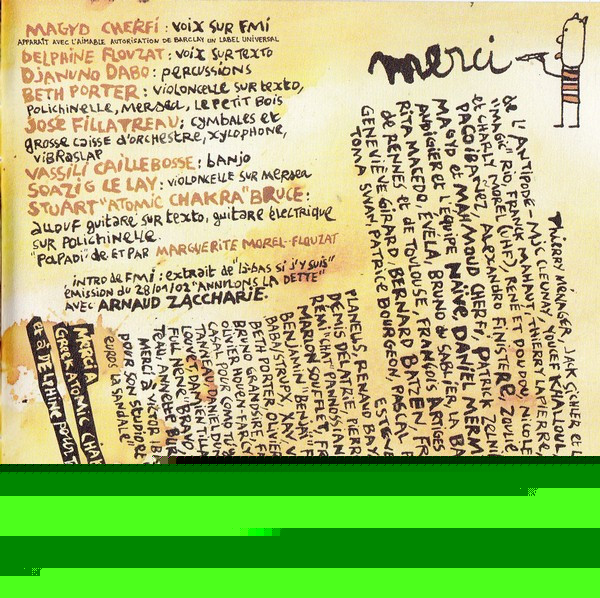 MAGYD CHERFI : VOIX SUR FMI
APPARAIT AVEC L'AIMABLE AUTORISATION DE BARCLAY UN LABEL UNIVERSAL
DELPHINE FLOUZAT : VOIX SUR TEXTO
DJANUNO DABO : percussions
BETH PORTER : violoncelle sur texto,
polichinelle, mersea, le petit bois
JOSE FILLATREAU, cymbales et
grosse caisse d'orchestre, xylophone,
vibraslap
VASSILI CAILLEBOSSE : banjo
SOAZIG LE LAY : violoncelle sur mersea
STUART "ATOMIC CHAKRA" BRUCE :
allouf guitare sur texto, guitare électrique
sur polichinelle.
"POLPADI" de et par MARGUERITE MOREL--FLOUZAT
INTRO de FMI : extrait de "là-bas si j'y suis"
émission du 28/01/02 "ANNULONS LA DETTE"
avec ARNAUD ZACCHARIE.
merci
Thierry MENAGER, JACK SICHLER et
de L'ANTIPODE - MJC CLEUNAY, YOUCEF KHALLOUL,
"MAGIC" RIO, FRANCK MAHAUT, THIERRY LAPIERRE,
et CHARLY MOREL (UHF), RENÉ ET DOUDOU, NICOLE
PACO IBAÑEZ, ALEXANDRO FINISTERE, ZOULIE
MAGYD et MAHMOUD CHERFI, PATRICK
AUDIGIER et L'ÉQUIPE NAÏVE, DANIEL MERM
RITA MACEDO, EVELA, BRUNO du SABLIER, LA BA
de RENNES et de TOULOUSE, FRANÇOIS ARTIGES
GENEVIÈVE GIRARD, BERNARD BATZEN, FR
TOMA SWAN, PATRICE BOURGEON, PASCAL
ESTEVE
PLANELLS, RENAUD BAY
DENIS DELATZIE, PIERR
REMI "CHAT" PANNOSSIAN
MARION SOUFFLET, FR
BENJAMIN "BENJAY" F
BABA/STRUPX, XAV
BETH PORTER, OLIVIER
BRUNO GRANDSIRE, FA
OLIVIER HOUEN-FARCY
CASAL POUR COMO TU
TANNEAU, DANIEL DUN
LOUVET, DAMIEN TILA
FULL NENE" BRAVO,
TEAU, ANNETTE BUR
MERCI à VICTOR
POUR SON STUDIORE
euros "LA SANDALE"
MERCI A
GREEK ATOMIC CHAK
et à DELPHINE POUR T